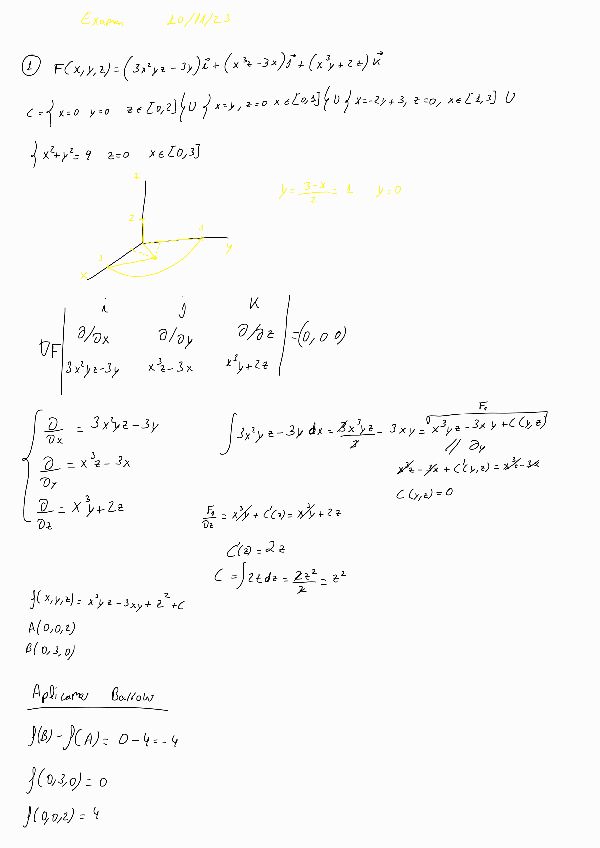 Examen 20/11/23
① F(x,y,z) = (3x²yz - 3y)i⃗ + (x³z - 3x)j⃗ + (x³y + 2z)k⃗
C = { x=0 y=0 z∈[0,2] } U { x=y, z=0 x∈[0,1] } U { x=-2y+3, z=0, x∈[1,3] U
{ x²+y²=9 z=0 x∈[0,3]
y = (3-x)/2 = 1 y=0
z
2
3
3
x
y
i j K
∇F | ∂/∂x ∂/∂y ∂/∂z | = (0,0 0)
3x²yz-3y x³z-3x x³y+2z
∂/∂x = 3x²yz - 3y
∂/∂y = x³z - 3x
∂/∂z = x³y + 2z
∫ 3x²yz - 3y dx = 3x³yz/3 - 3xy = x³yz - 3xy + C(y,z)
// ∂y
x³z - 3x + C'(y,z) = x³z - 3x
C(y,z) = 0
∂z = x³y + C'(z) = x³y + 2z
C'(z) = 2z
C = ∫ 2z dz = 2z²/2 = z²
f(x,y,z) = x³yz - 3xy + z² + C
A(0,0,2)
B(0,3,0)
Aplicamos Barrow
f(B) - f(A) = 0 - 4 = -4
f(0,3,0) = 0
f(0,0,2) = 4